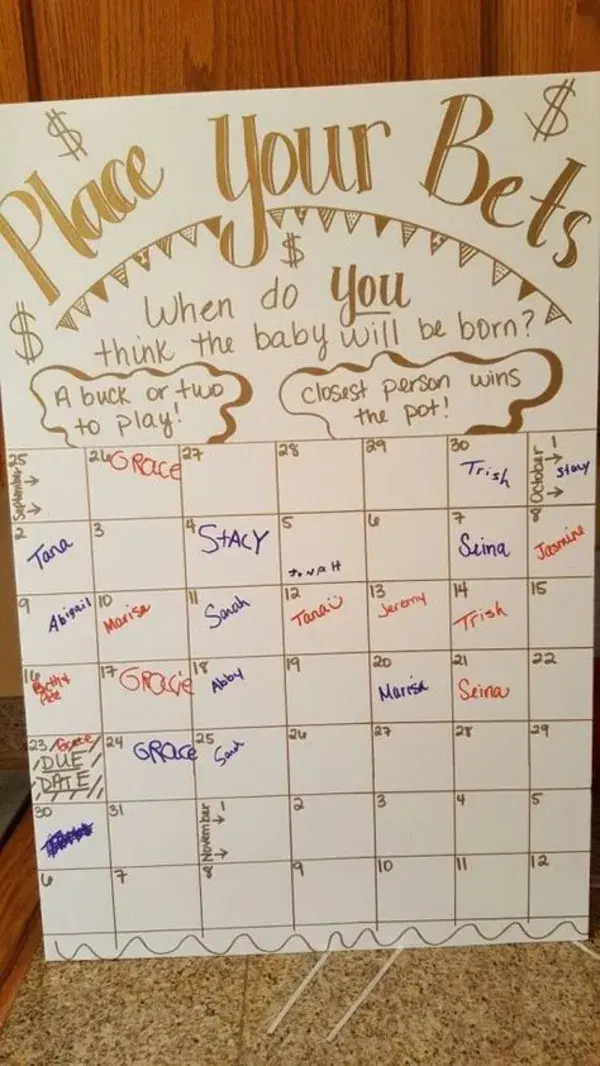 $ $
Place Your Bets
$
$
When do YOU
think the baby will be born?
A buck or two
to play!
Closest person wins
the pot!
25 September → → 26 GRACE 27 28 29 30 Trish October 1 → → Stacy
2 Tana 3 4 STACY 5 JONAH 6 7 Seina 8 Jasmine
9 Abigail 10 Marisa 11 Sarah 12 Tana 13 Jeremy 14 Trish 15
16 17 GRACIE 18 Abby 19 20 Marisa 21 Seina 22
23 DUE DATE 24 GRACE 25 Sarah 26 27 28 29
30 31 November 1 → → 2 3 4 5
6 7 8 9 10 11 12